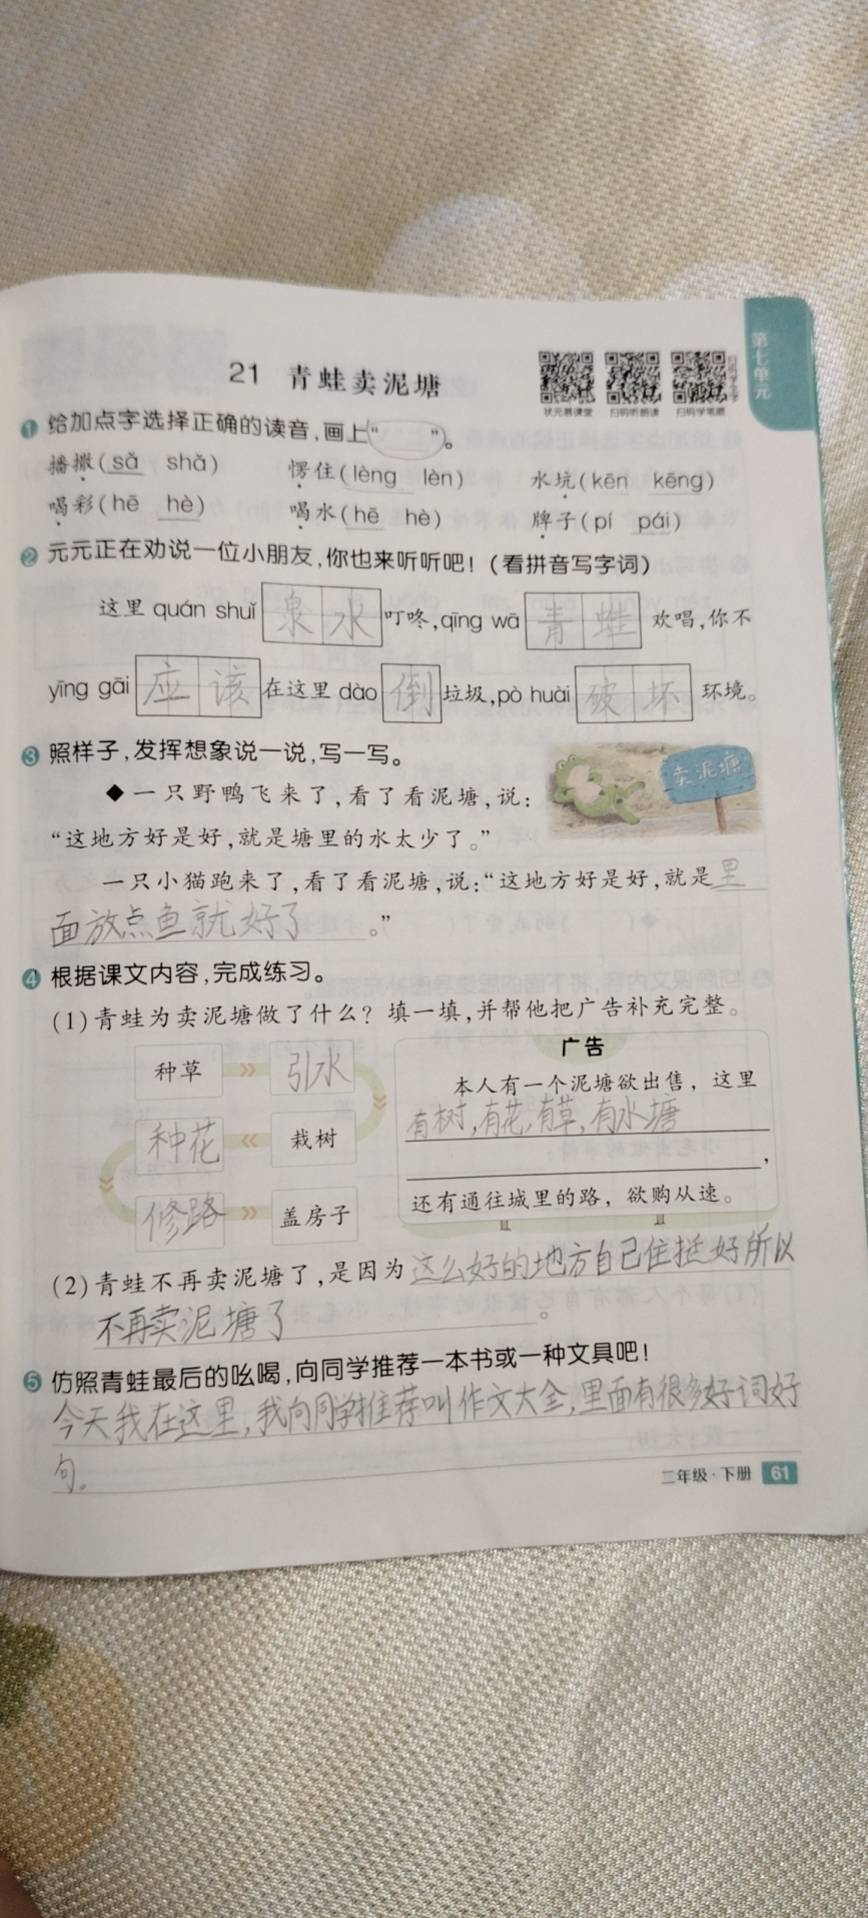 第七单元
21 青蛙卖泥塘
状元易课堂 扫码听朗读 扫码学笔顺
1 给加点字选择正确的读音,画上“ ”。
播撒(sǎ shǎ) 愣住(lèng lèn) 水坑(kēn kēng)
喝彩(hē hè) 喝水(hē hè) 牌子(pí pái)
2 元元正在劝说一位小朋友,你也来听听吧!(看拼音写字词)
这里 quán shuǐ 泉水 叮咚,qīng wā 青蛙 欢唱,你不
yīng gāi 应该 在这里 dào 倒 垃圾,pò huài 破坏 环境。
3 照样子,发挥想象说一说,写一写。
卖泥塘
◆一只野鸭飞来了,看了看泥塘,说:
“这地方好是好,就是塘里的水太少了。”
一只小猫跑来了,看了看泥塘,说:“这地方好是好,就是里
面放点鱼就好了。”
4 根据课文内容,完成练习。
(1)青蛙为卖泥塘做了什么?填一填,并帮他把广告补充完整。
种草 引水
种花 栽树
修路 盖房子
广告
本人有一个泥塘欲出售,这里
有树,有花,有草,有水塘
,
还有通往城里的路,欲购从速。
(2)青蛙不再卖泥塘了,是因为这么好的地方自己住挺好所以
不再卖泥塘了。
5 仿照青蛙最后的吆喝,向同学推荐一本书或一种文具吧!
今天我在这里,我向同学推荐叫作文大全,里面有很多好词好
句。
二年级·下册 61